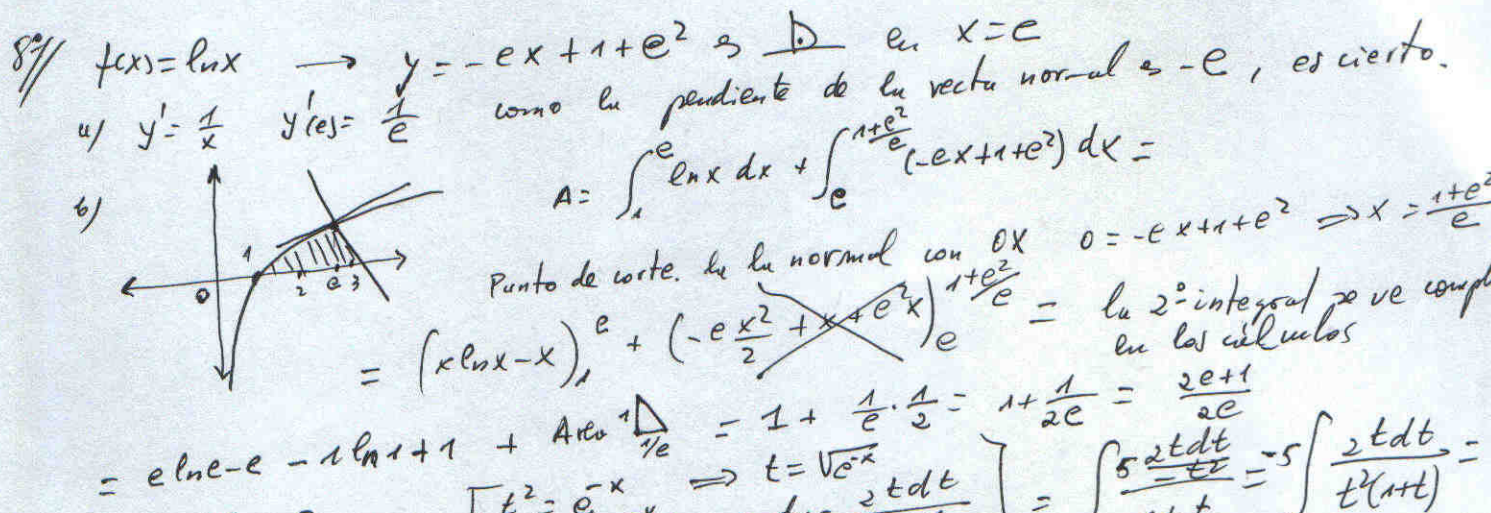 8º// f(x)=lnx → y=-ex+1+e² es ⊥ en x=e
a/ y'=1/x y'(e)=1/e como la pendiente de la recta normal es -e, es cierto.
b) A= ∫₁^e lnx dx + ∫_e^((1+e²)/e) (-ex+1+e²) dx =
Punto de corte. de la normal con OX 0=-ex+1+e² ⇒ x=(1+e²)/e
1
0 2 e 3
= (xlnx-x)₁^e + (-e x²/2 + x + e²x)_e^((1+e²)/e) = la 2ª integral se ve
en los cálculos
= e lne-e -1 ln1+1 + Area 1 1/e = 1 + 1/e · 1/2 = 1+ 1/2e = (2e+1)/2e
t²=e^-x ⇒ t=√e^-x
2tdt = ∫ 5 2tdt/-t² = -5 ∫ 2tdt/(t²(1+t)) =